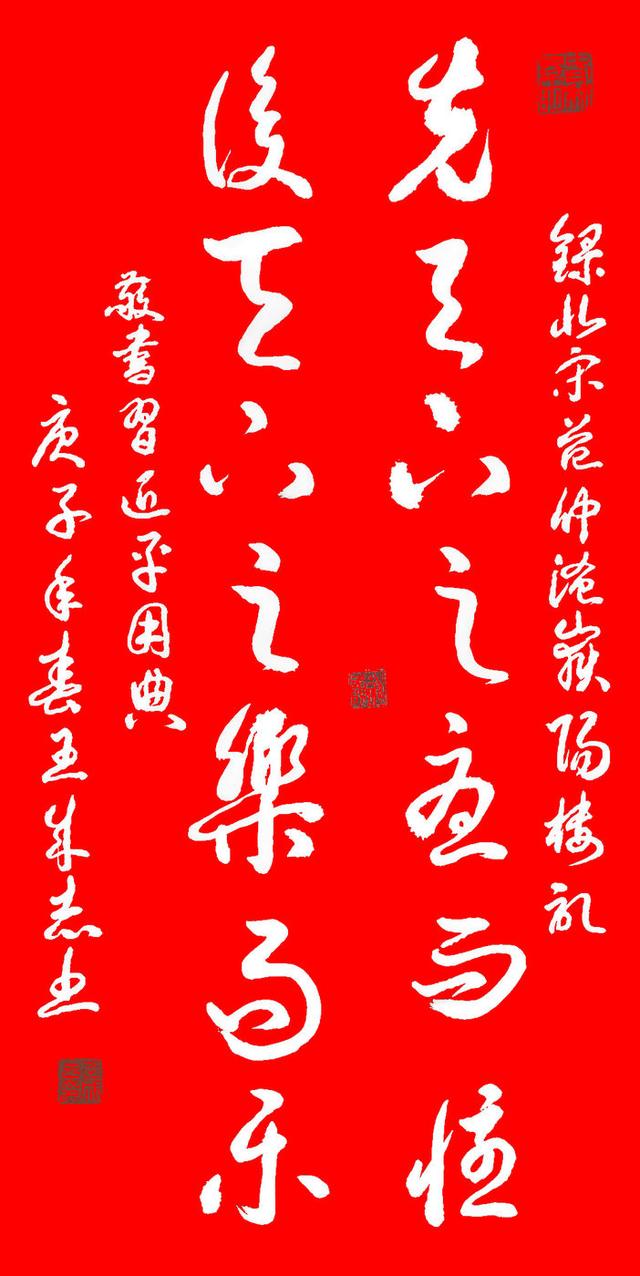 錄北宋范仲淹嶽陽樓記
先天下之憂而懮
後天下之樂而乐
敬書習近平用典
庚子年春王